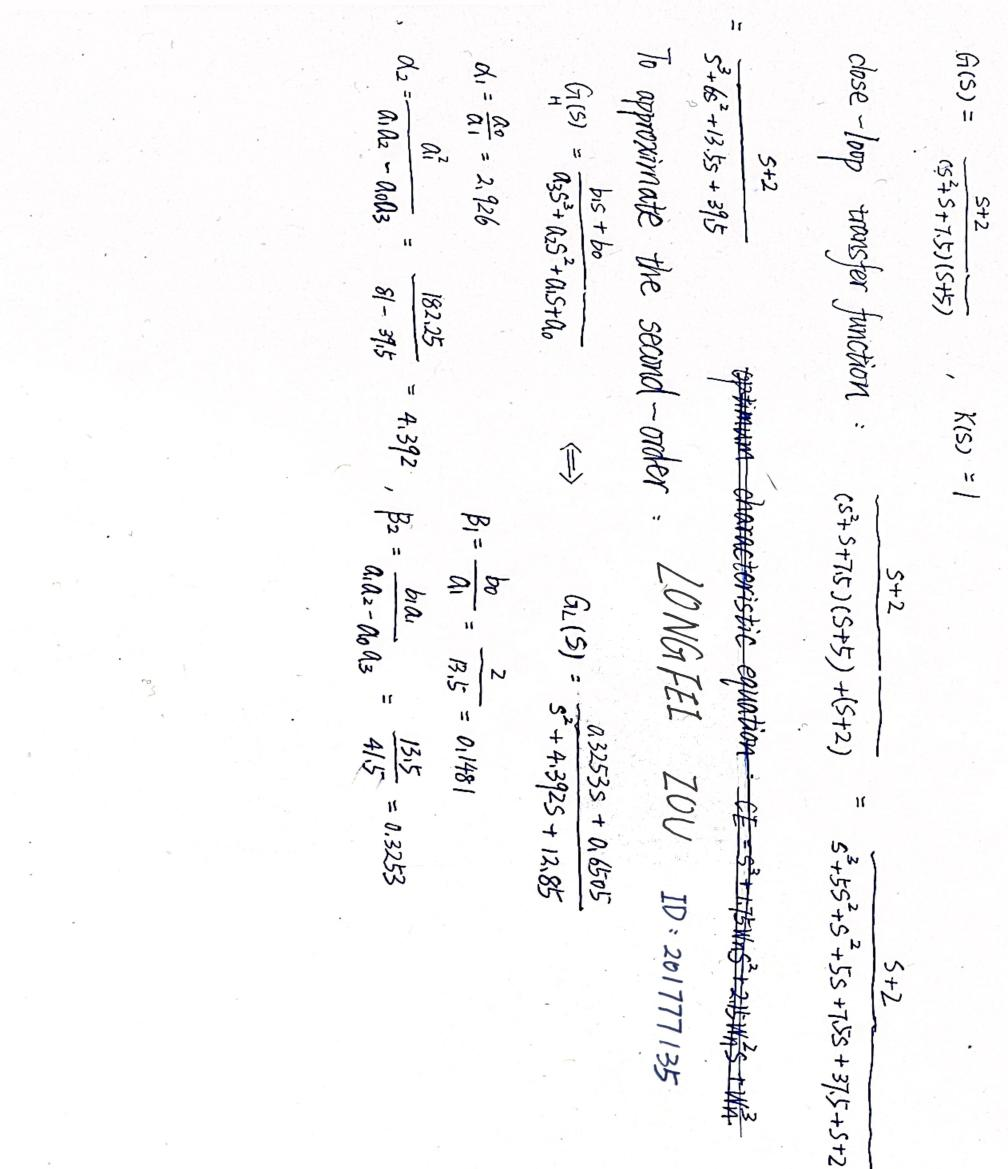 G(s) = (s+2)/((s²+s+7.5)(s+5)) , K(s) = 1
close-loop transfer function : (s+2)/((s²+s+7.5)(s+5)+(s+2)) = (s+2)/(s³+5s²+s²+5s+7.5s+37.5+s+2)
= (s+2)/(s³+6s²+13.5s+39.5)
optimum characteristic equation : CE = s³+1.75Wns²+2.15Wn²s+Wn³
To approximate the second-order : LONGFEI ZOU ID: 201777135
G_H(s) = (b₁s+b₀)/(a₃s³+a₂s²+a₁s+a₀) <=> G_L(s) = (0.3253s+0.6505)/(s²+4.392s+12.85)
α₁ = a₀/a₁ = 2.926 β₁ = b₀/a₁ = 2/13.5 = 0.1481
α₂ = a₁²/(a₁a₂-a₀a₃) = 182.25/(81-39.5) = 4.392 , β₂ = b₁a₁/(a₁a₂-a₀a₃) = 13.5/41.5 = 0.3253